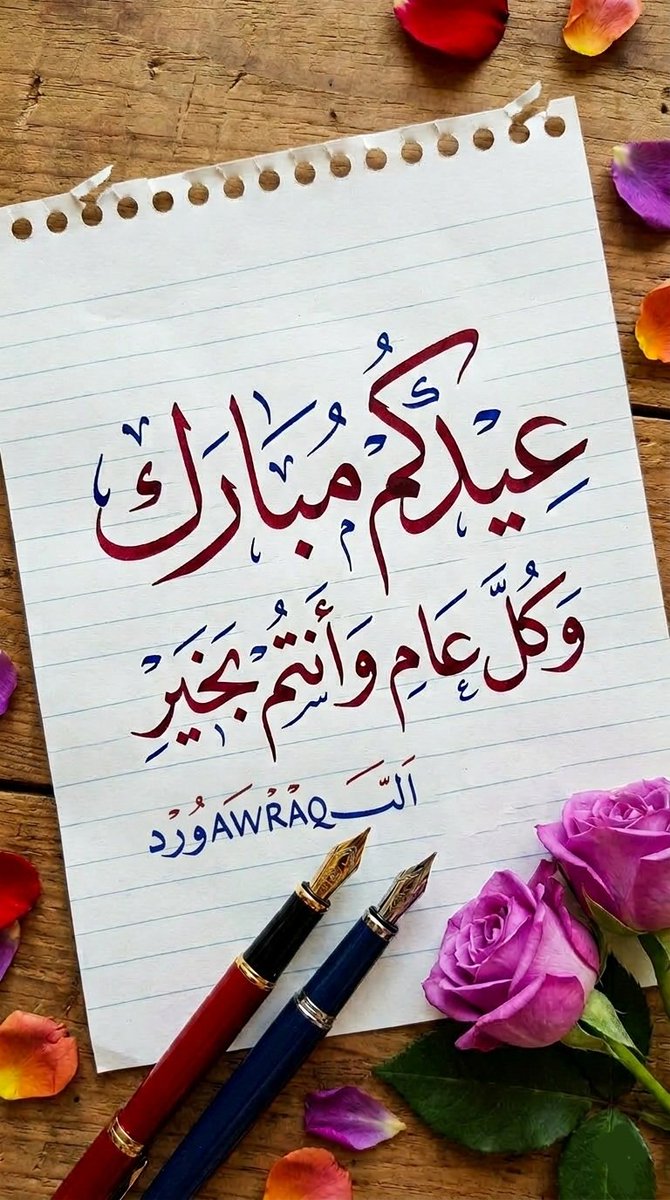 عِيدُكُم مُبَارَك
وَكُلَّ عَامِ وَأَنتُم بَخَيَرِ
اَلتَــ AWRAQ وُرْد